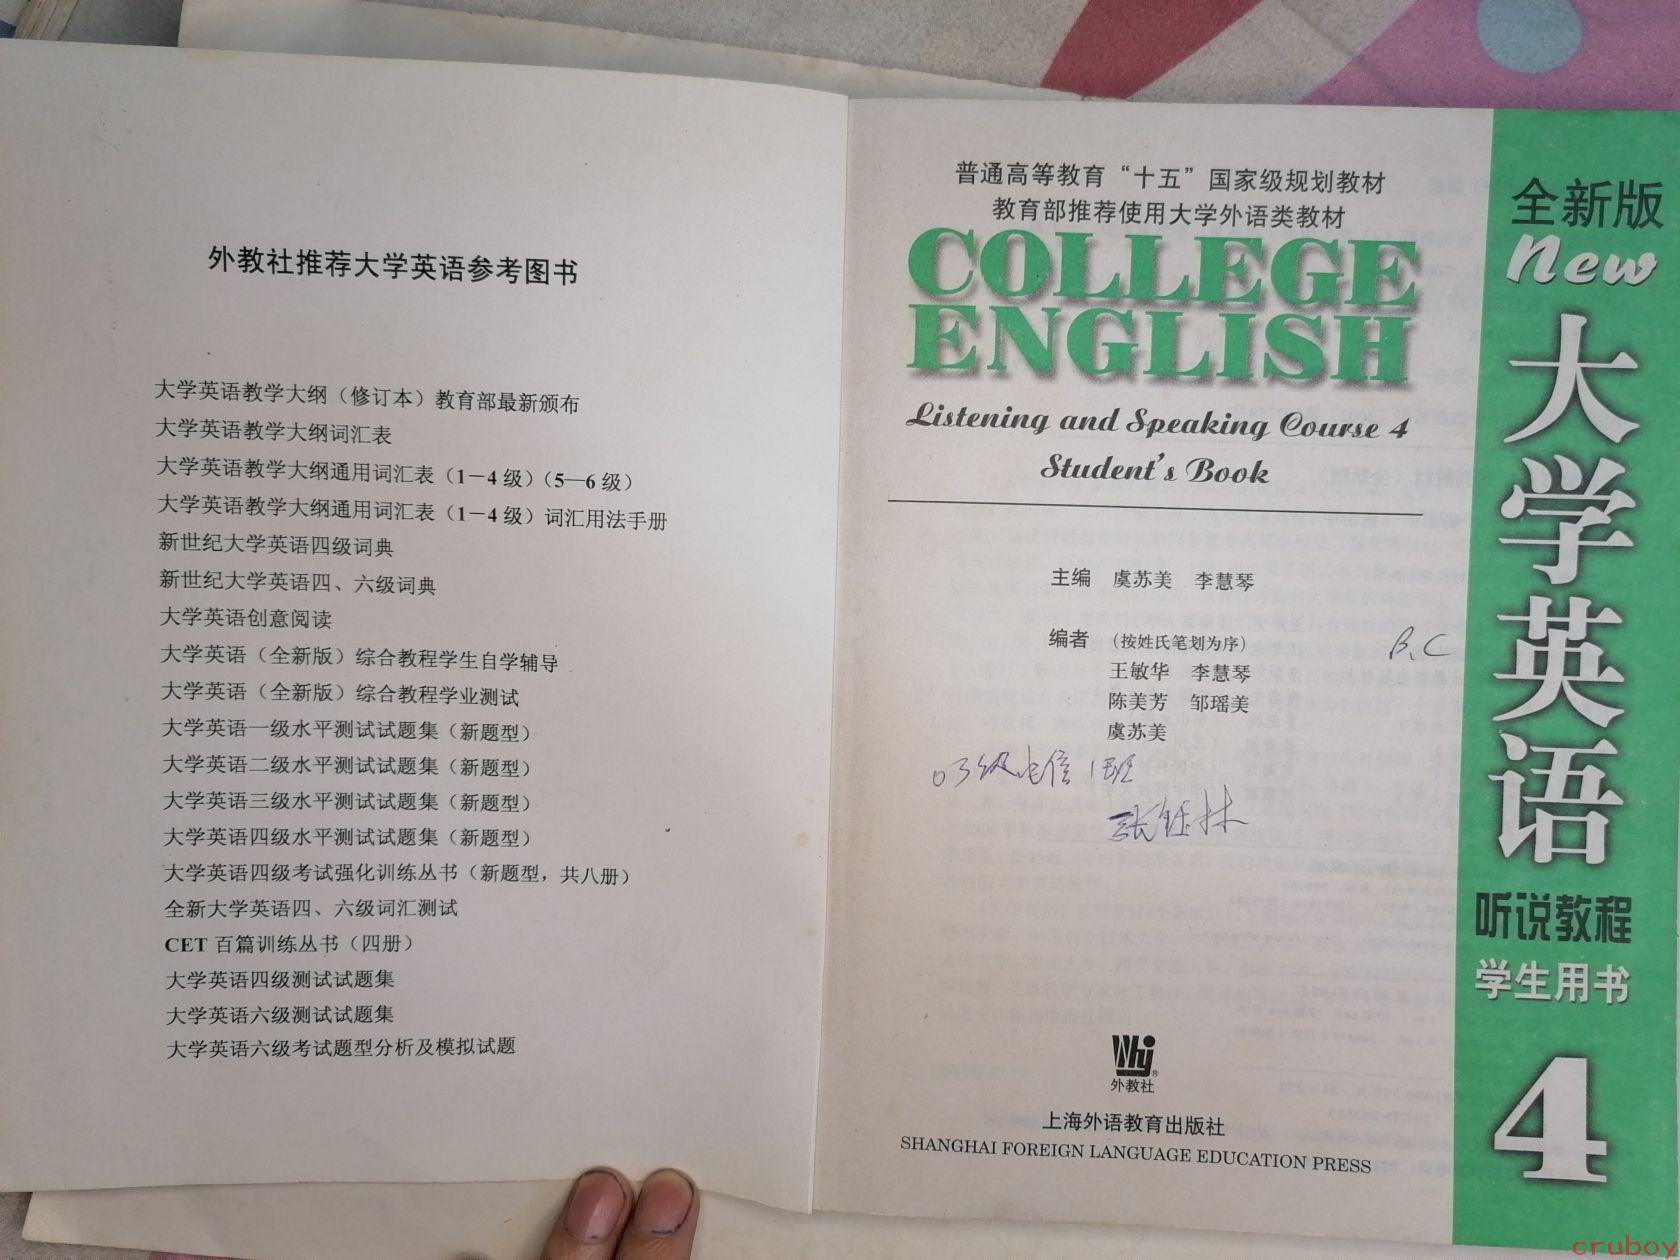 外教社推荐大学英语参考图书
大学英语教学大纲（修订本）教育部最新颁布
大学英语教学大纲词汇表
大学英语教学大纲通用词汇表（1－4级）（5—6级）
大学英语教学大纲通用词汇表（1－4级）词汇用法手册
新世纪大学英语四级词典
新世纪大学英语四、六级词典
大学英语创意阅读
大学英语（全新版）综合教程学生自学辅导
大学英语（全新版）综合教程学业测试
大学英语一级水平测试试题集（新题型）
大学英语二级水平测试试题集（新题型）
大学英语三级水平测试试题集（新题型）
大学英语四级水平测试试题集（新题型）
大学英语四级考试强化训练丛书（新题型，共八册）
全新大学英语四、六级词汇测试
CET 百篇训练丛书（四册）
大学英语四级测试试题集
大学英语六级测试试题集
大学英语六级考试题型分析及模拟试题
普通高等教育“十五”国家级规划教材
教育部推荐使用大学外语类教材
COLLEGE
ENGLISH
Listening and Speaking Course 4
Student's Book
主编 虞苏美 李慧琴
编者 （按姓氏笔划为序）
王敏华 李慧琴
陈美芳 邹瑶美
虞苏美
B.C
03级电信1班
张钰林
Whj®
外教社
上海外语教育出版社
SHANGHAI FOREIGN LANGUAGE EDUCATION PRESS
全新版
New
大学英语
听说教程
学生用书
4
cruboy